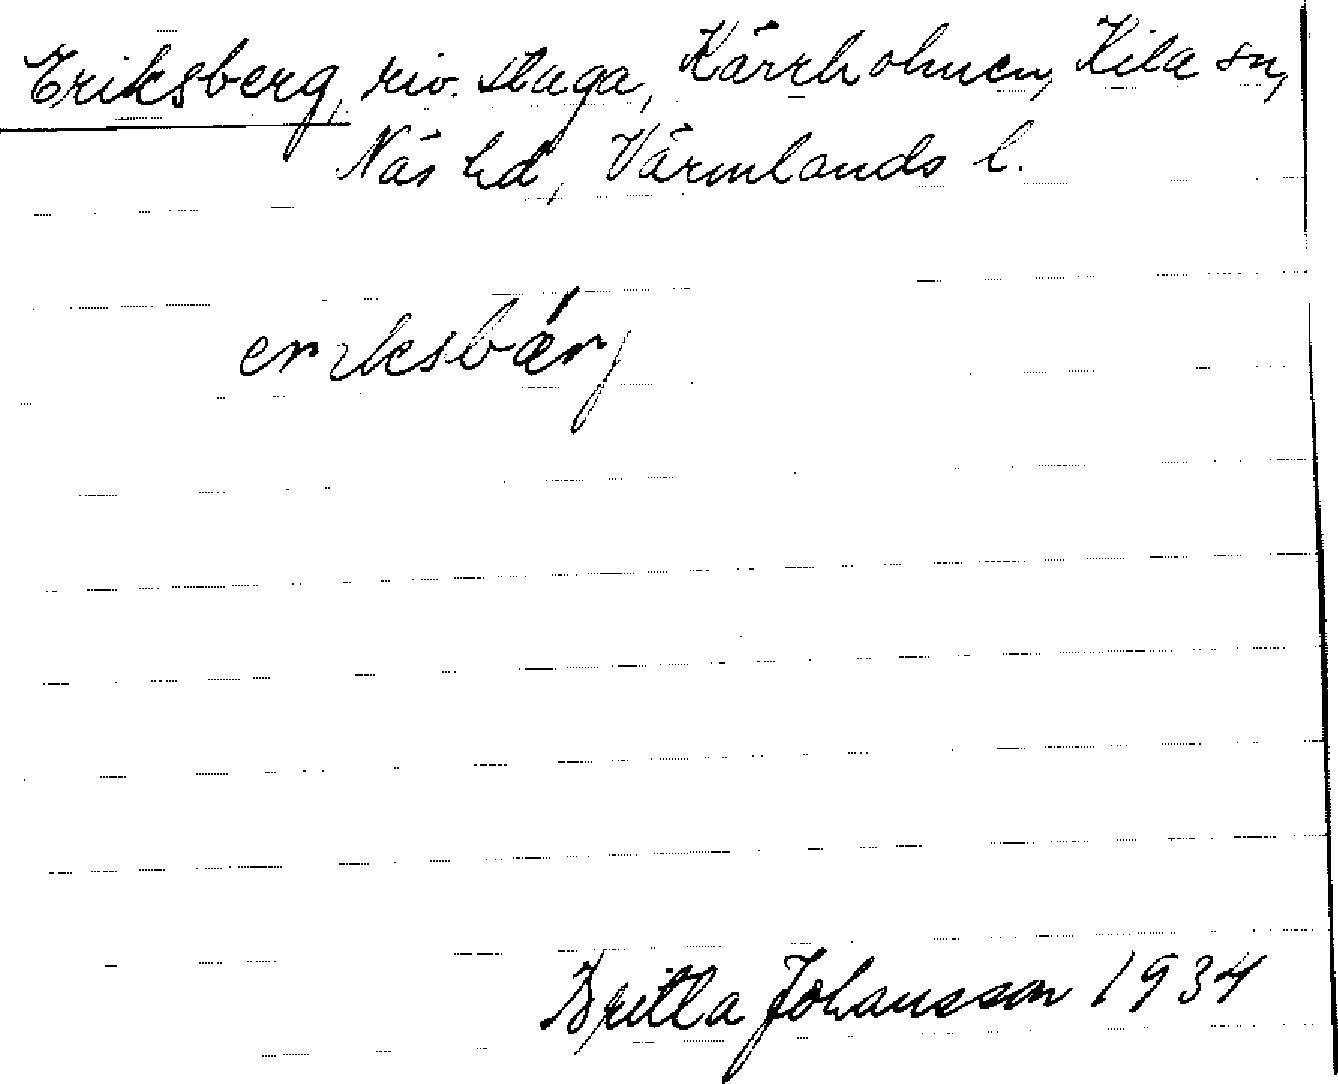 Eriksberg, riv. stuga, Kärrholmen, Kila sn,
Näs hd, Värmlands l.
eriksbärj
Britta Johansson 1934